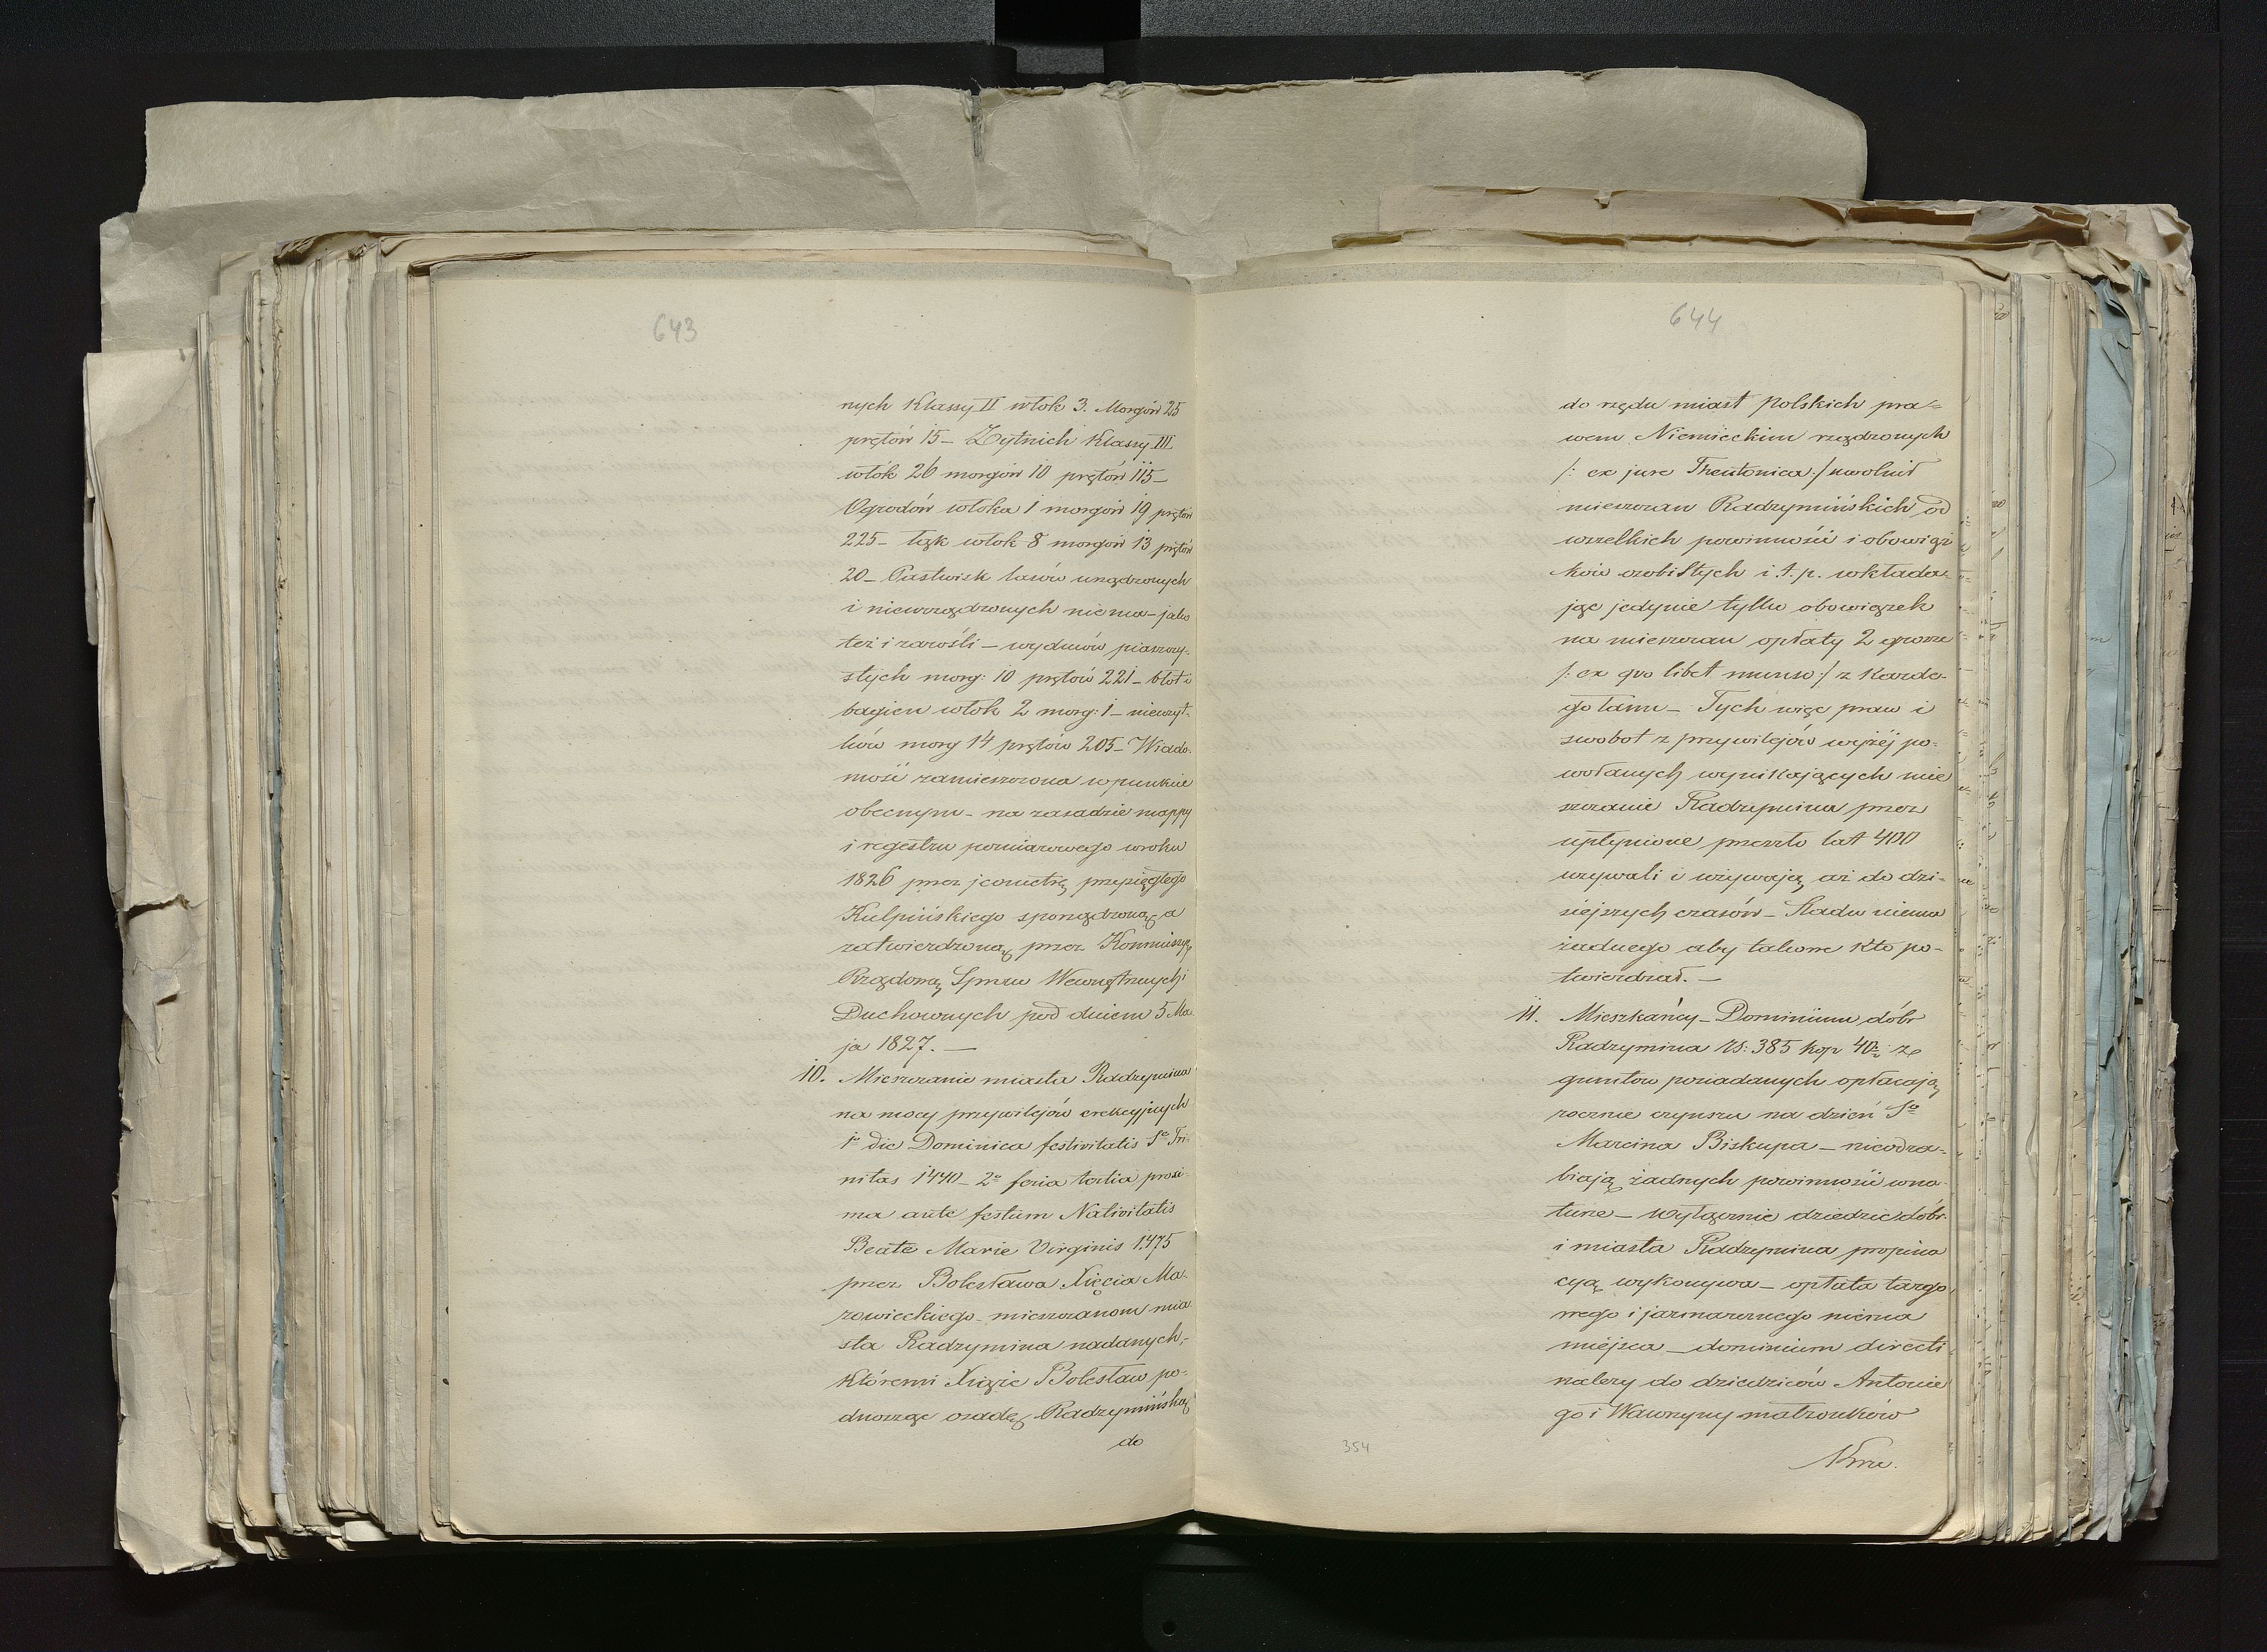 643
nych Klassy II włok 3. Morgów 25
prętów 15 _ Żytnich Klassy III
włók 26 morgów 10 prętów 115 _
Ogrodów włoka 1 morgów 19 prętów
225 _ łąk włok 8 morgów 13 prętów
20 _ Pastwisk lasów urządzonych
i nieurządzonych niema _ jako
też i zarośli _ wydmów piaszczy-
stych morg: 10 prętów 221 _ błot i
bagien włók 2 morg: 1 _ nieużyt-
ków morg 14 prętów 205 _ Wiado-
mość zamieszczona w punkcie
obecnym _ na zasadzie mappy
i regestru pomiarowego w roku
1826 przez jeometrę przysięgłego
Kulpińskiego sporządzoną a
zatwierdzoną przez Kommissyę
Rządową Spraw Wewnętrznych i
Duchownych pod dniem 5 Ma
ja 1827. _
10. Mieszczanie miasta Radzymina
na mocy przywilejów erekcyjnych
1o die Dominica festivitatis Se Tri-
nitas 1440 _ 2o feria tertia proxi-
ma ante festum Nativitatis
Beate Marie Virginis 1475
przez Bolesława Xięcia Ma-
zowieckiego _ mieszczanom mia
sta Radzymina nadanych,
któremi Xiąże Bolesław po-
dnosząc osadę Radzymińską
do
644
do rzędu miast Polskich pra=
wem Niemieckim rządzonych
/: ex jure Theutonica :/ uwolnił
mieszczan Radzymińskich od
wszelkich powinności i obowiąz
ków osobistych i t. p. wkłada-
jąc jedynie tylko obowiązek
na mieszczan opłaty 2 grosze
/: ex quo libet manso :/ z każde-
go łanu _ Tych więc praw i
swobot z przywilejów wyżéj po-
wołanych wynikających mie
szczanie Radzymina przez
upłynione przeszło lat 400
używali i używają aż do dzi-
siejszych czasów _ Śladu niema
żadnego aby takowe kto po-
twierdzał. _
11. Mieszkańcy _ Dominium dóbr
Radzymina rs: 385 kop 40 1/2 ze
gruntów posiadanych opłacają
rocznie czynszu na dzień Sgo
Marcina Biskupa _ nieodra-
biają żadnych powinności w na-
turze _ wyłącznie dziedzic dóbr
i miasta Radzymina propina
cyą wykonywa _ opłata targo
wego i jarmarcznego niema
miejsca _ dominium directi
należy do dziedziców Antonie
go i Wawrzyny małżonków
354